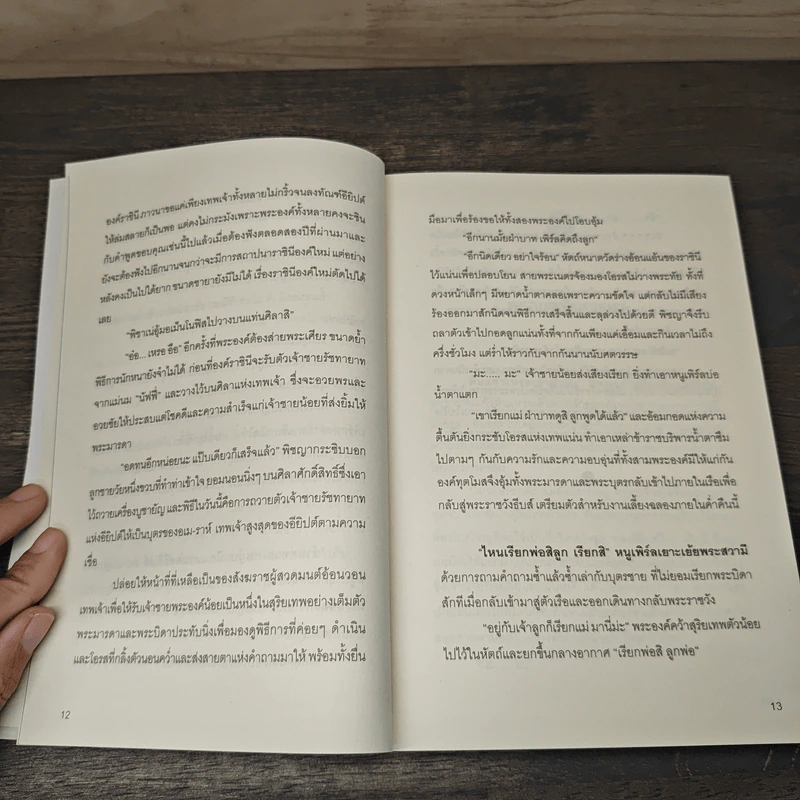 องค์ราชินี ภาวนาขอแค่เพียงเทพเจ้าทั้งหลายไม่กริ้วจนลงทัณฑ์อียิปต์
ให้ล่มสลายก็เป็นพอ แต่คงไม่กระมังเพราะพระองค์ทั้งหลายคงจะชิน
กับคำพูดขอบคุณเช่นนี้ไปแล้วเมื่อต้องฟังตลอดสองปีที่ผ่านมาและ
ยังจะต้องฟังไปอีกนานจนกว่าจะมีการสถาปนาราชินีองค์ใหม่ แต่อย่าง
หลังคงเป็นไปได้ยาก ขนาดชายายังมีไม่ได้ เรื่องราชินีองค์ใหม่ตัดไปได้
เลย
"พิชาเน่อุ้มอเม็นโนฟิสไปวางบนแท่นศิลาสิ"
"อ๋อ... เหรอ อือ" อีกครั้งที่พระองค์ต้องส่ายพระเศียร ขนาดย้ำ
พิธีการนักหนายังจำไม่ได้ ก่อนที่องค์ราชินีจะรับตัวเจ้าชายรัชทายาท
จากแม่นม "นัฟฟี่" และวางไว้บนศิลาแห่งเทพเจ้า ซึ่งจะอวยพรและ
อวยชัยให้ประสบแต่โชคดีและความสำเร็จแก่เจ้าชายน้อยที่ส่งยิ้มให้
พระมารดา
"อดทนอีกหน่อยนะ แป๊บเดียวก็เสร็จแล้ว" พิชญากระซิบบอก
ลูกชายวัยหนึ่งขวบที่ทำท่าเข้าใจ ยอมนอนนิ่งๆ บนศิลาศักดิ์สิทธิ์ซึ่งเอา
ไว้ถวายเครื่องบูชายัญ และพิธีในวันนี้คือการถวายตัวเจ้าชายรัชทายาท
แห่งอียิปต์ให้เป็นบุตรของอเม-ราห์ เทพเจ้าสูงสุดของอียิปต์ตามความ
เชื่อ
ปล่อยให้หน้าที่ที่เหลือเป็นของสังฆราชผู้สวดมนต์อ้อนวอน
เทพเจ้าเพื่อให้รับเจ้าชายพระองค์น้อยเป็นหนึ่งในสุริยเทพอย่างเต็มตัว
พระมารดาและพระบิดาประทับนิ่งเพื่อมองดูพิธีการที่ค่อยๆ ดำเนิน
และโอรสที่กลิ้งตัวนอนคว่ำและส่งสายตาแห่งคำถามมาให้ พร้อมทั้งยื่น
12
มือมาเพื่อร้องขอให้ทั้งสองพระองค์ไปโอบอุ้ม
"อีกนานมั้ยฝ่าบาท เพิร์ลคิดถึงลูก"
"อีกนิดเดียว อย่าใจร้อน" หัตถ์หนาตวัดร่างอ้อนแอ้นของราชินี
ไว้แน่นเพื่อปลอบโยน สายพระเนตรจ้องมองโอรสไม่วางพระทัย ทั้งที่
ดวงหน้าเล็กๆ มีหยาดน้ำตาคลอเพราะความขัดใจ แต่กลับไม่มีเสียง
ร้องออกมาสักนิดจนพิธีการเสร็จสิ้นและลุล่วงไปด้วยดี พิชญาจึงรีบ
ถลาตัวเข้าไปกอดลูกแน่นทั้งที่จากกันเพียงแค่เอื้อมและกินเวลาไม่ถึง
ครึ่งชั่วโมง แต่ร่ำไห้ราวกับจากกันนานนับศตวรรษ
"มะ..... มะ" เจ้าชายน้อยส่งเสียงเรียก ยิ่งทำเอาหนูเพิร์ลบ่อ
น้ำตาแตก
"เขาเรียกแม่ ฝ่าบาทดูสิ ลูกพูดได้แล้ว" และอ้อมกอดแห่งความ
ตื้นตันยิ่งกระชับโอรสแห่งเทพแน่น ทำเอาเหล่าข้าราชบริพารน้ำตาซึม
ไปตามๆ กันกับความรักและความอบอุ่นที่ทั้งสามพระองค์มีให้แก่กัน
องค์ทุตโมสจึงอุ้มทั้งพระมารดาและพระบุตรกลับเข้าไปภายในเรือเพื่อ
กลับสู่พระราชวังธีบส์ เตรียมตัวสำหรับงานเลี้ยงฉลองภายในค่ำคืนนี้
"ไหนเรียกพ่อสิลูก เรียกสิ" หนูเพิร์ลเยาะเย้ยพระสวามี
ด้วยการถามคำถามซ้ำแล้วซ้ำเล่ากับบุตรชาย ที่ไม่ยอมเรียกพระบิดา
สักทีเมื่อกลับเข้ามาสู่ตัวเรือและออกเดินทางกลับพระราชวัง
"อยู่กับเจ้าลูกก็เรียกแม่ มานี่ม่ะ" พระองค์คว้าสุริยเทพตัวน้อย
ไปไว้ในหัตถ์และยกขึ้นกลางอากาศ "เรียกพ่อสิ ลูกพ่อ"
13